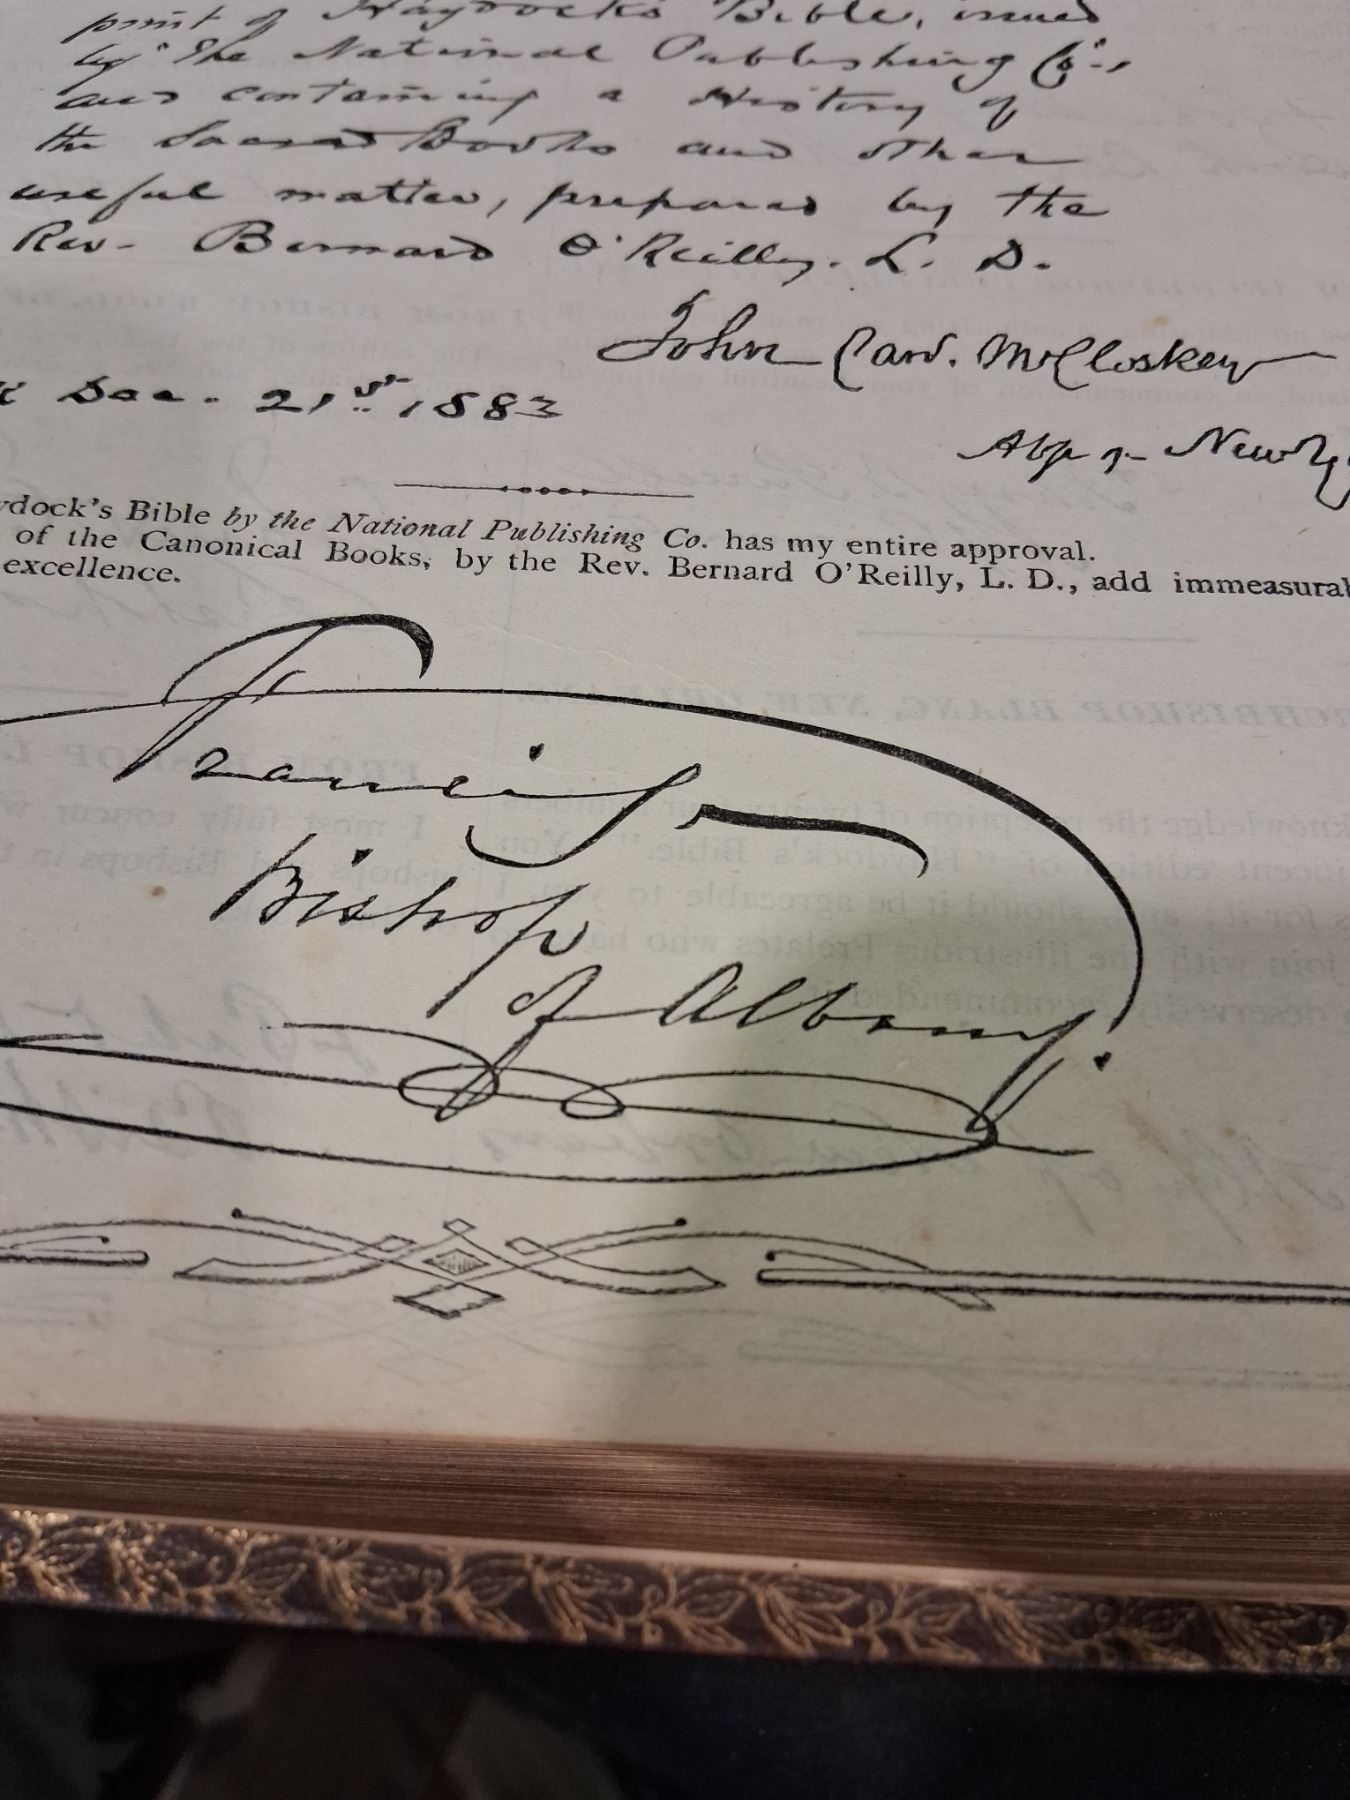 print of Haydock's Bible, issued
by The National Publishing Co.,
and containing a History of
the Sacred Books and other
useful matter, prepared by the
Rev. Bernard O'Reilly. L. D.
John Card. McCloskey
Dec. 21st, 1883
Abp of New Y
ydock's Bible by the National Publishing Co. has my entire approval.
of the Canonical Books, by the Rev. Bernard O'Reilly, L. D., add immeasural
excellence.
Francis
Bishop
of Albany.